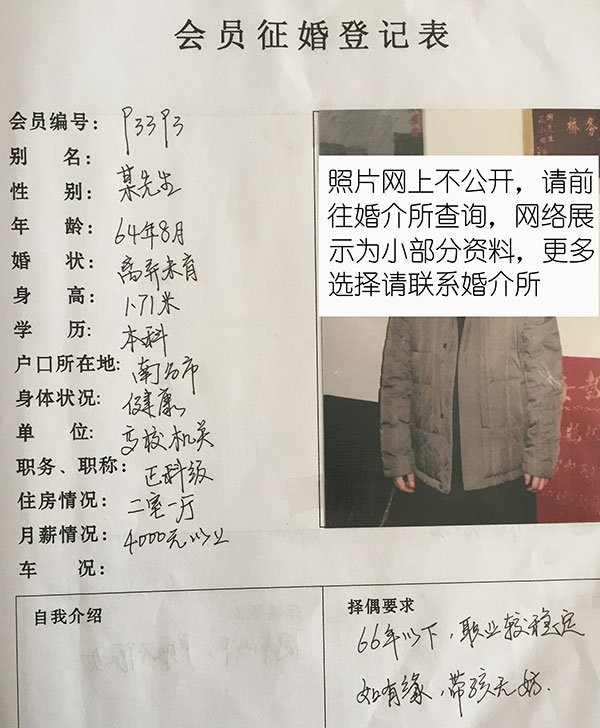 会员征婚登记表
会员编号： P33P3
别 名： 某先生
性 别：
年 龄： 64年8月
婚 状： 离异未育
身 高： 1.71米
学 历： 本科
户口所在地： 南昌市
身体状况： 健康
单 位： 高校机关
职务、职称： 正科级
住房情况： 二室一厅
月薪情况： 4000元以上
车 况：
照片网上不公开，请前
往婚介所查询，网络展
示为小部分资料，更多
选择请联系婚介所
自我介绍
择偶要求
66年以下，职业较稳定
如有缘，带孩无妨.